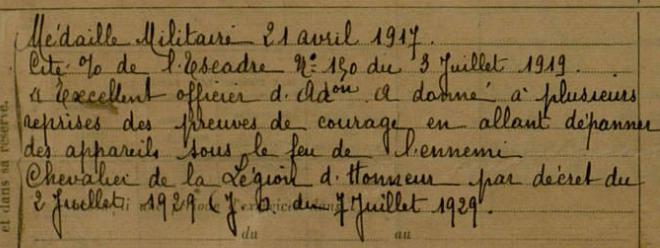 Médaille Militaire 21 avril 1917.
Cité % de l'Escadre N° 150 du 3 Juillet 1919.
" Excellent officier d'Adon a donné à plusieurs
reprises des preuves de courage en allant dépanner
des appareils sous le feu de l'ennemi
Chevalier de la Légion d'Honneur par décret du
2 Juillet 1929 (J O du 7 Juillet 1929.
du au
et dans sa réserve.